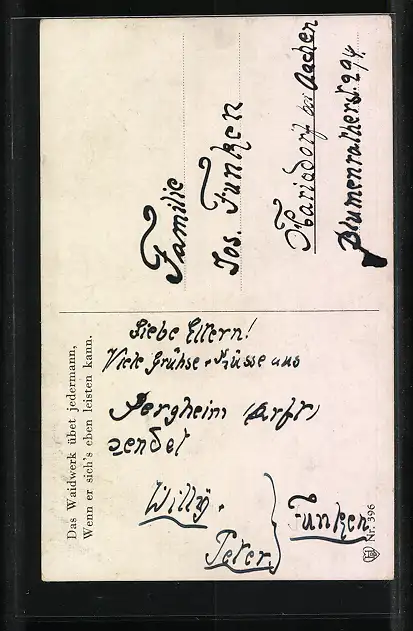 Das Waidwerk übet jedermann,
Wenn er sich's eben leisten kann.
Liebe Eltern!
Viele Grühse + Küsse aus
Bergheim (Erft)
sendet
Willy.
Peter
Funken
Familie
Jos. Funken
Mariadorf bei Aachen
Blumenratherstr. 294.
Nr. 396